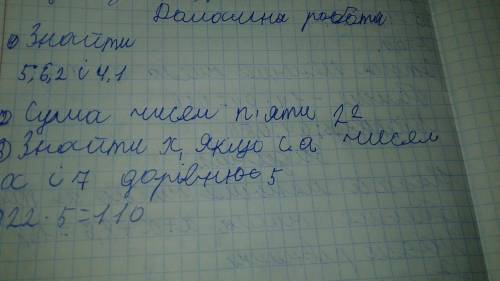 Домашня робота
1) Знайти
5; 6,2 і 4,1
2) Сума чисел п'яти 22
3) Знайти x, якщо с.а чисел
x і 7 дорівнює 5
22 · 5 = 110